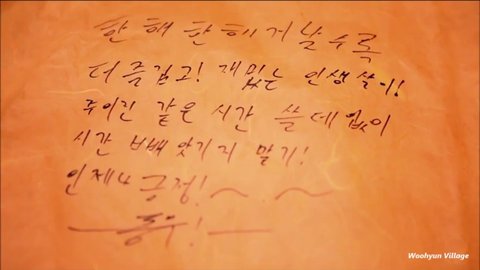 한 해 한 해 거날수록
더 즐겁고! 재밌는 인생살이!
주어진 같은 시간 쓸데없이
시간 빼앗기지 말기!
언제나 긍정!~.~
Woohyun Village